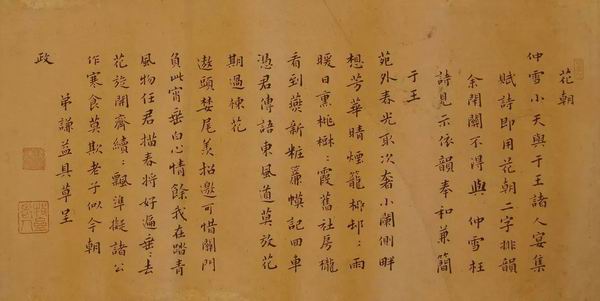 花朝
仲雪小天與于王諸人宴集
賦詩即用花朝二字排韻
余閉關不得與仲雪枉
詩見示依韻奉和兼簡
于王
苑外春光取次奢小闌側畔
想芳華晴煙籠柳邨〻雨
暖日熏桃樹〻霞舊社房櫳
看到燕新粧簾幙記回車
憑君傳語東風道莫放花
期過楝花
遨頭婪尾羙招邀可惜關門
負此宵垂白心情餘我在踏青
風物任君描春將好遍垂〻去
花旋開齊續〻飄準擬諸公
作寒食莫欺老子似今朝
弟謙益具草呈
政